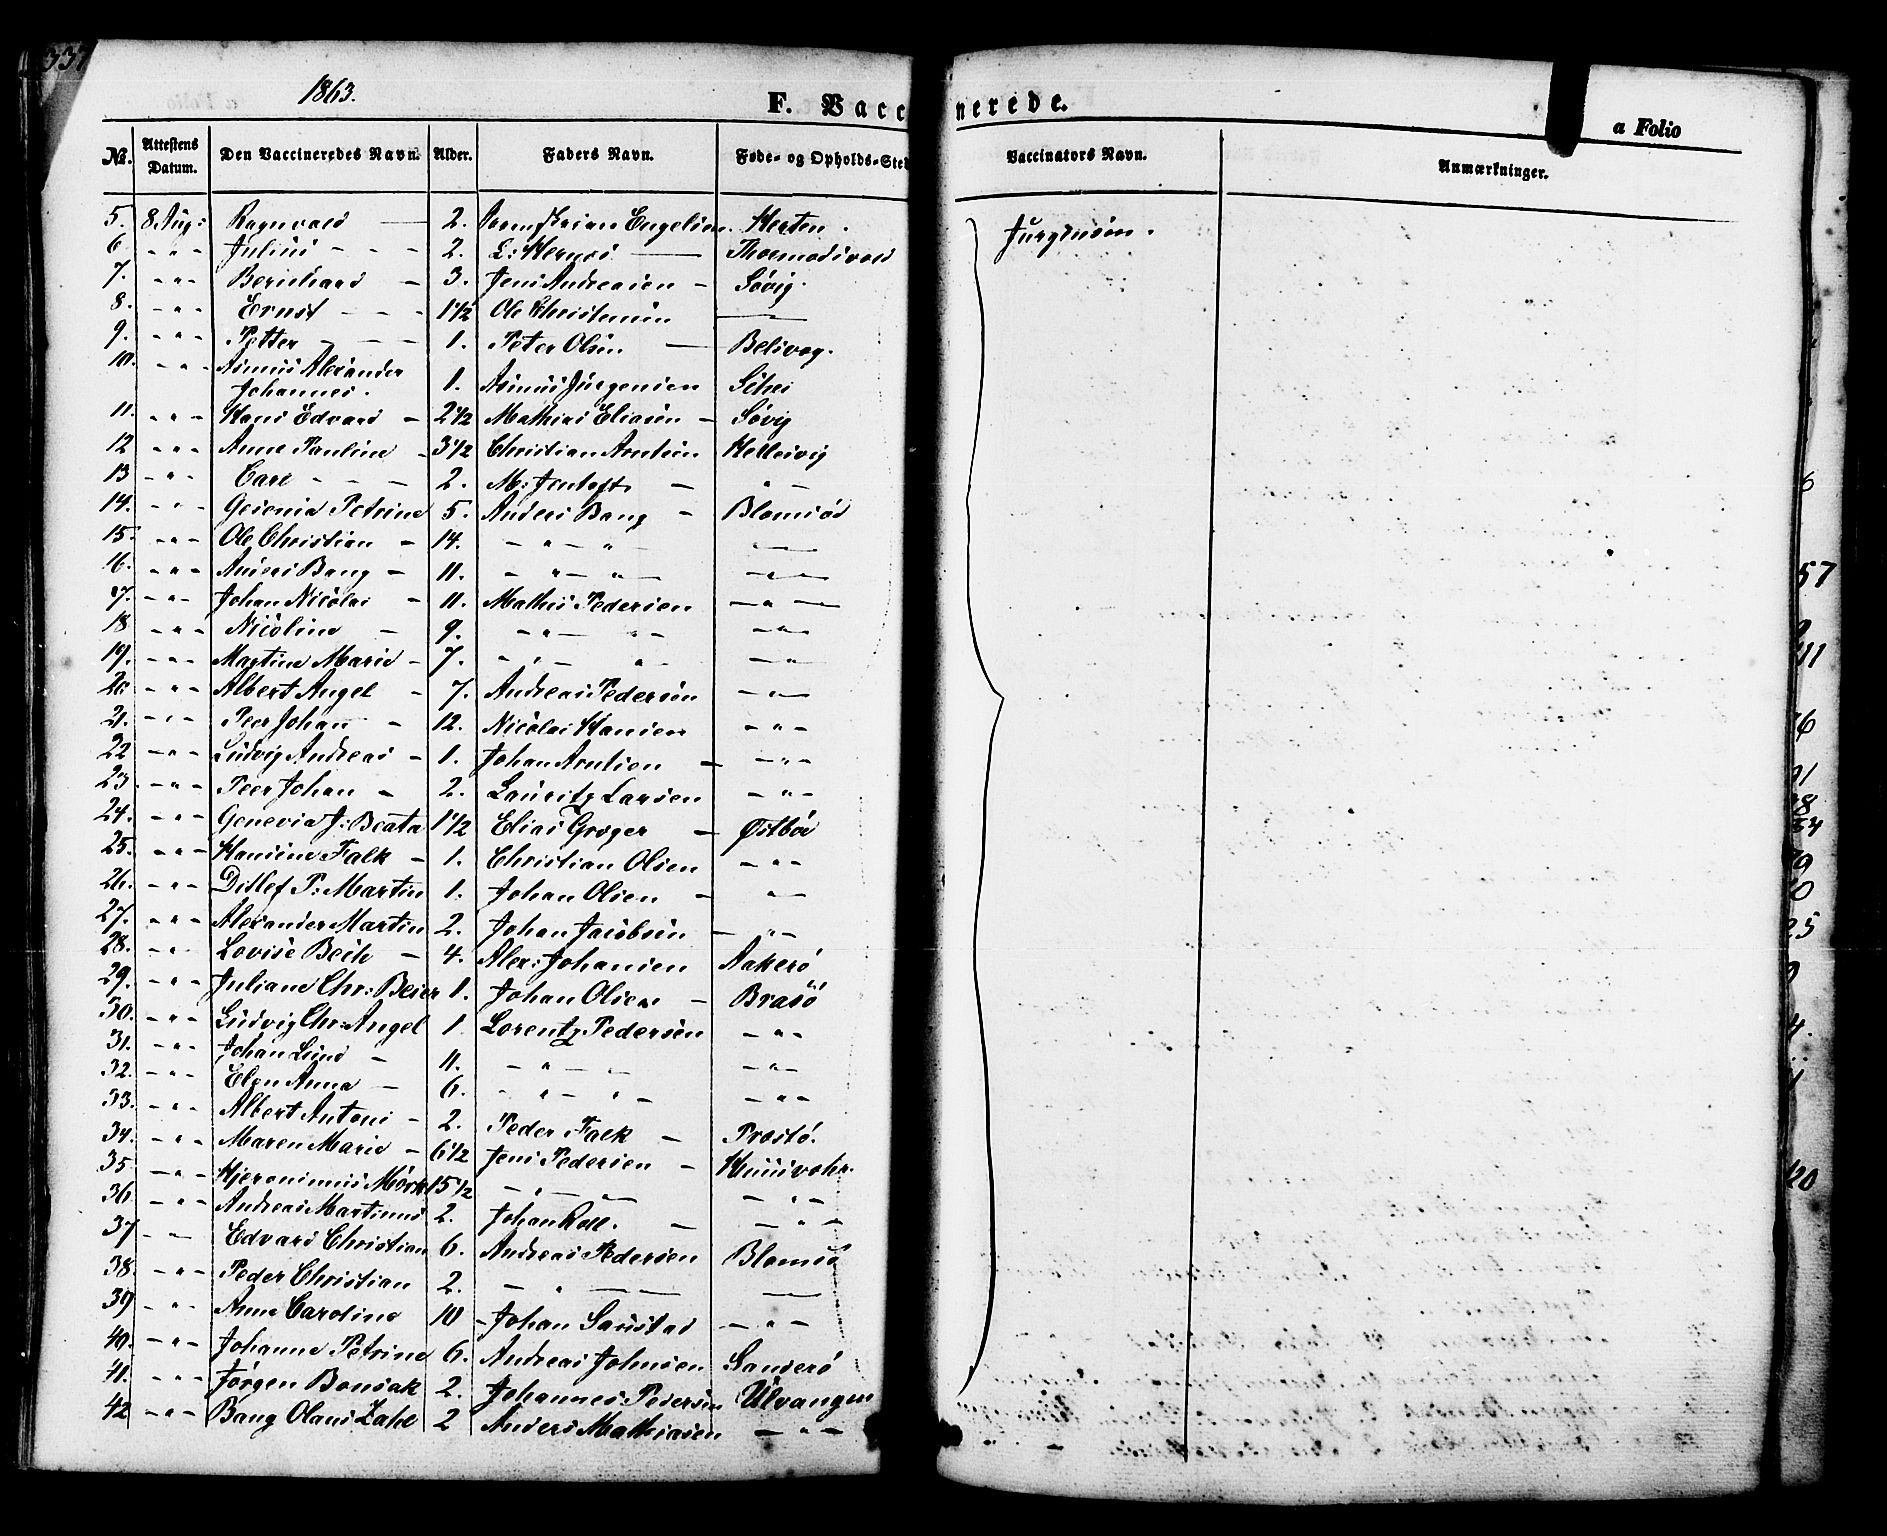 337
1863.
F. Vaccinerede.
a Folio
№. Attestens Datum. Den Vaccineredes Navn. Alder. Faders Navn. Føde- og Opholds-Sted Vaccinators Navn. Anmærkninger.
5. 8 Aug: Ragnvald — 2. Engelsen. Herten. Jurgensen.
6 - " - Julius - - - 2. L: — Thormodsvold
7. - " - Bernhard — 3. Jens Andreasen - Søvig.
8. - " - Ernst - - - 1 1/2 Ole Christensen —
9. - " - Petter - - - 1. Peter Olsen — Belsvog.
10. - " - Asmus Alexander
Johannes. 1. Asmus Jürgensen
11. - " - Hans Edvard - 2 1/2 Mathias Eliasen - Søvig
12 - " - Anne Pauline - 3 1/2 Christian Arntsen Hellesvig
13 - " - Carl - - - 2. M: Jentoft — " —
14. - " - Petrine 5. Anders Bang - Blomsöe
15. - " - Ole Christian - 14. - " - " - —
16. - " - Anders Bang - 11. - " - " - - " -
17. - " - Johan Nicolai - 11. Mathis Pedersen - " -
18 - " - Nicoline - 9. - " - " - - " -
19. - " - Martine Marie - 7. - " - " - - " -
20 - " - Albert Angel - 7. Andreas Pedersen - " -
21. - " - Peer Johan - 12. Nicolai Hansen - " -
22 - " - Ludvig Andreas - 1. Johan Arntsen - - " -
23. - " - Peer Johan - 2. Lauritz Larsen - " -
24. - " - Genevia J: Beata 1 1/2 Elias Grøger - Østbøe
25. - " - Hansine Falk - 1. Christian Olsen - " -
26. - " - Ditlef P: Martin 1. Johan Olsen - - " -
27. - " - Alexander Martin 2. Johan Jacobsen - " -
28. - " - Lovise Bech - 4. Alex: Johansen Aakerö
29. - " - Juliane Chr: Beier 1. Johan Olsen - Brasö
30. - " - Ludvig Chr: Angel 1. Lorentz Pedersen - " -
31. - " - Johan Lund - 11. - " - - - " -
32. - " - Elen Anna - 6. - " - " - - " -
33. - " - Albert Antoni - 2. Peder Falk - Prestö.
34. - " - Maren Marie - 6 1/2 Jens Pedersen - Husvohr.
35 - " - Hjeronimus Mörk 15 1/2 - " - - - " -
36. - " - Andreas Martinus 2. Johan Roll. - - " -
37 - - Edvard Christian 6. Andreas Pedersen Blomsö
38. - " - Peder Christian 2. - " - - —
39 - " - Anne Caroline 10 Johan Saustad - " -
40. - " - Johanne Petrine 6. Andreas Johnsen Sanderö
41. - " - Jørgen Bonsak 2. Johannes Pedersen Ulvangen
42 - " - Bang Olaus Zahl 2 Anders Mathiasen - " -